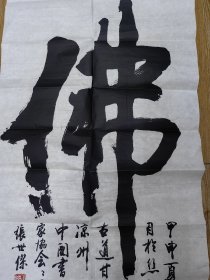 佛
甲申夏
月於丝
古道甘
凉州
中国书
家协会
张世保